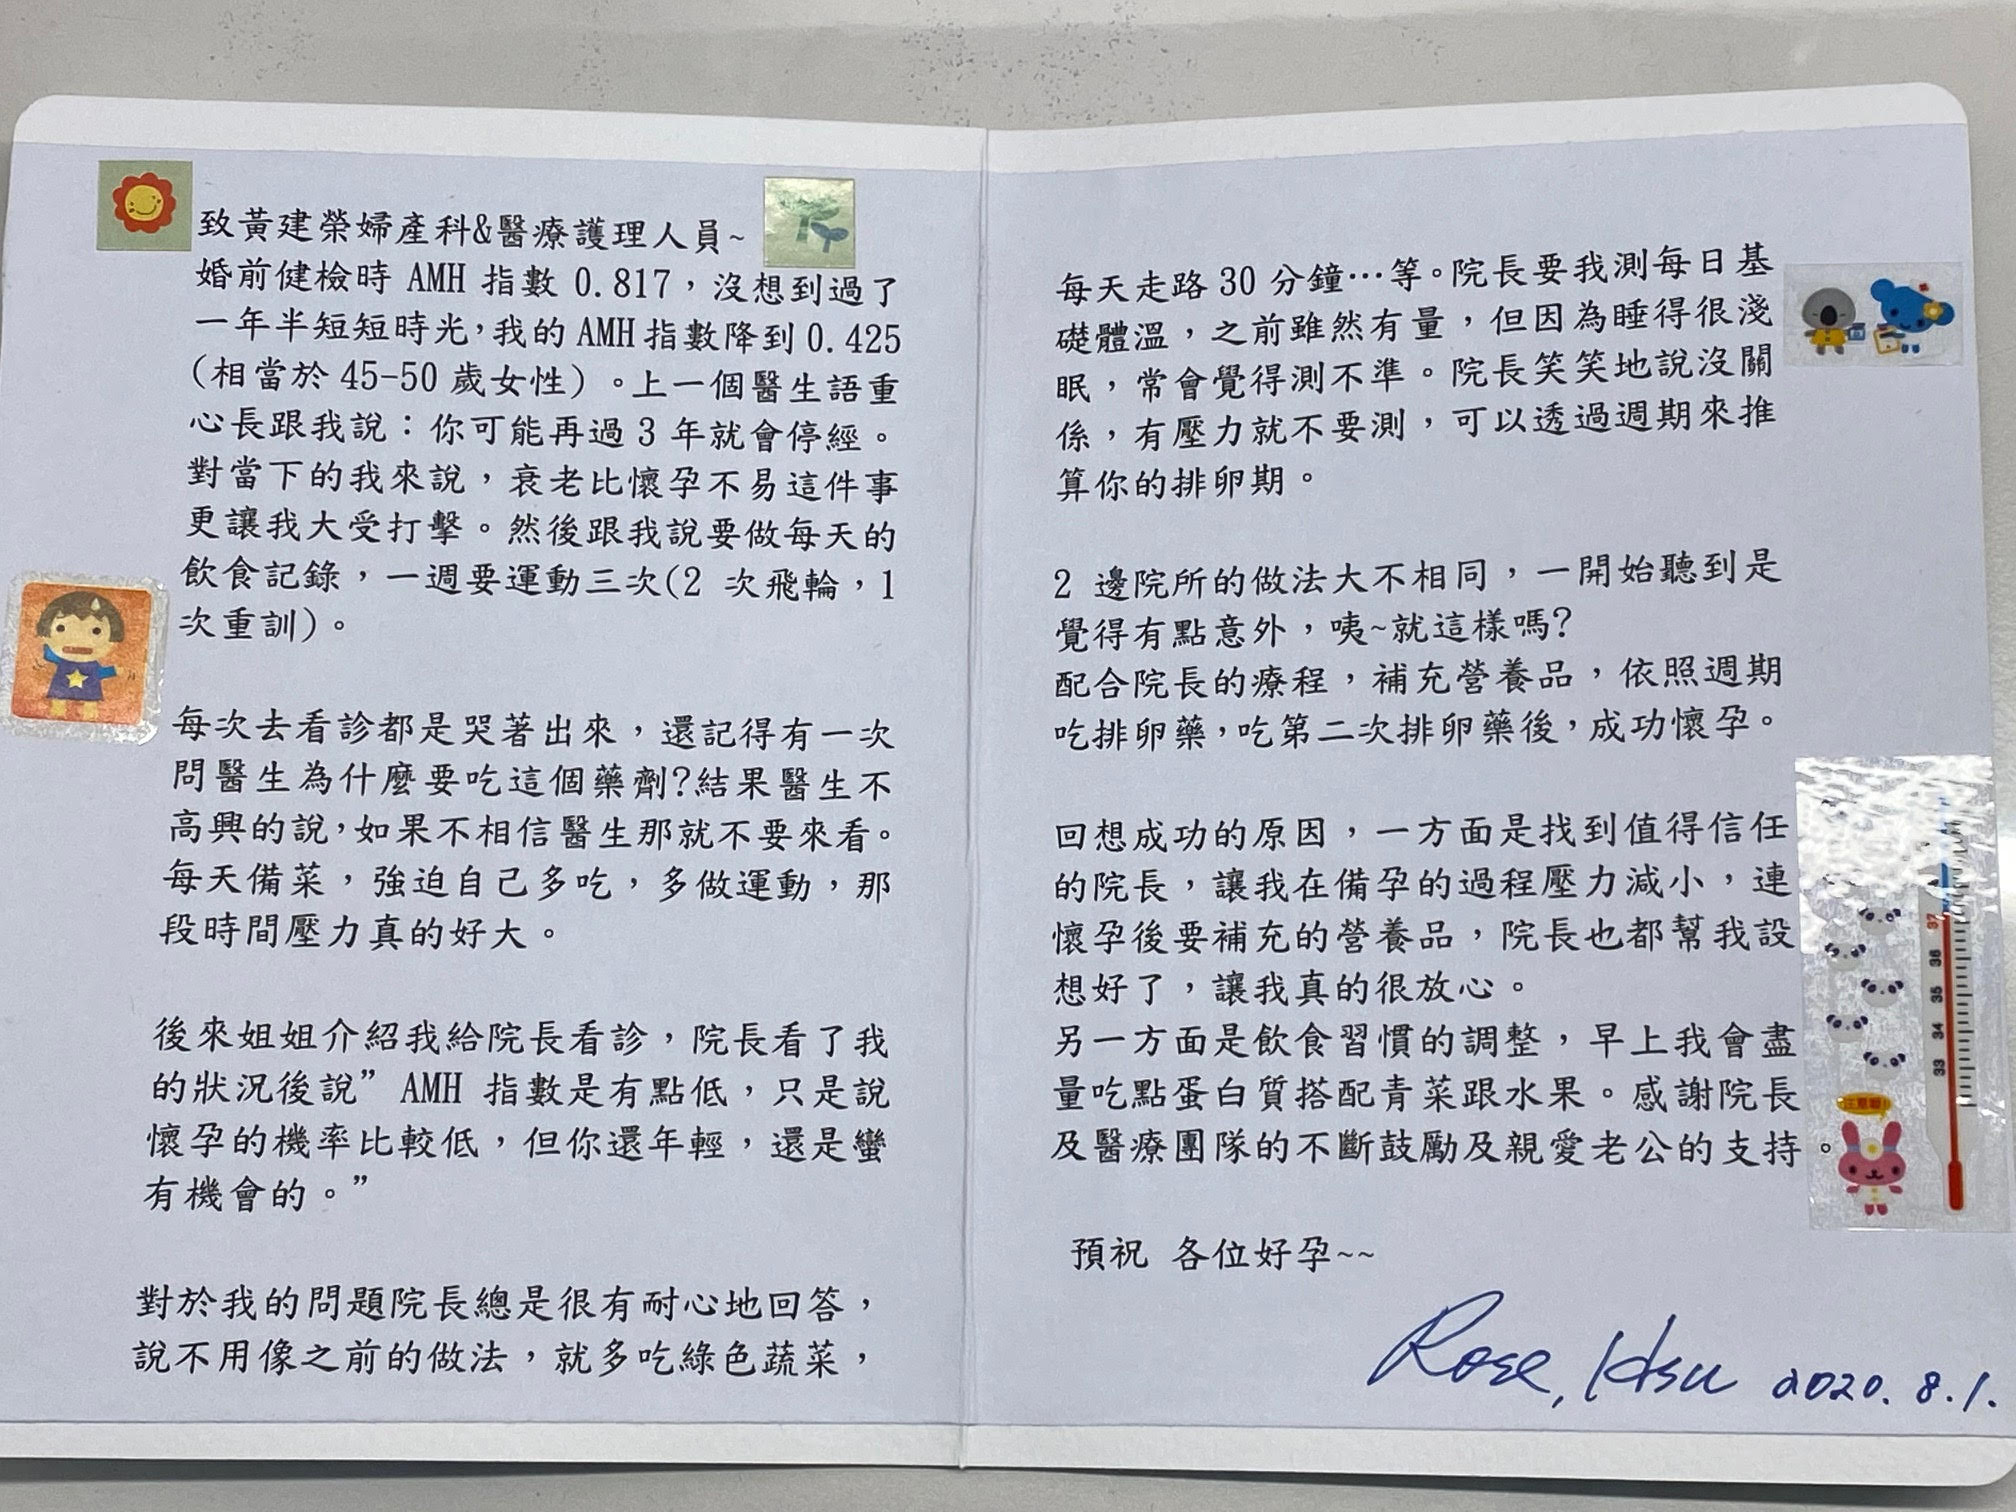 致黃建榮婦產科&醫療護理人員~
婚前健檢時 AMH 指數 0.817，沒想到過了
一年半短短時光，我的 AMH 指數降到 0.425
(相當於 45-50 歲女性)。上一個醫生語重
心長跟我說：你可能再過 3 年就會停經。
對當下的我來說，衰老比懷孕不易這件事
更讓我大受打擊。然後跟我說要做每天的
飲食記錄，一週要運動三次(2 次飛輪，1
次重訓)。
每次去看診都是哭著出來，還記得有一次
問醫生為什麼要吃這個藥劑?結果醫生不
高興的說，如果不相信醫生那就不要來看。
每天備菜，強迫自己多吃，多做運動，那
段時間壓力真的好大。
後來姐姐介紹我給院長看診，院長看了我
的狀況後說” AMH 指數是有點低，只是說
懷孕的機率比較低，但你還年輕，還是蠻
有機會的。”
對於我的問題院長總是很有耐心地回答，
說不用像之前的做法，就多吃綠色蔬菜，
每天走路 30 分鐘…等。院長要我測每日基
礎體溫，之前雖然有量，但因為睡得很淺
眠，常會覺得測不準。院長笑笑地說沒關
係，有壓力就不要測，可以透過週期來推
算你的排卵期。
2 邊院所的做法大不相同，一開始聽到是
覺得有點意外，咦~就這樣嗎?
配合院長的療程，補充營養品，依照週期
吃排卵藥，吃第二次排卵藥後，成功懷孕。
回想成功的原因，一方面是找到值得信任
的院長，讓我在備孕的過程壓力減小，連
懷孕後要補充的營養品，院長也都幫我設
想好了，讓我真的很放心。
另一方面是飲食習慣的調整，早上我會盡
量吃點蛋白質搭配青菜跟水果。感謝院長
及醫療團隊的不斷鼓勵及親愛老公的支持。
預祝 各位好孕~~
Rose, Hsu 2020.8.1.
37
36
35
34
33